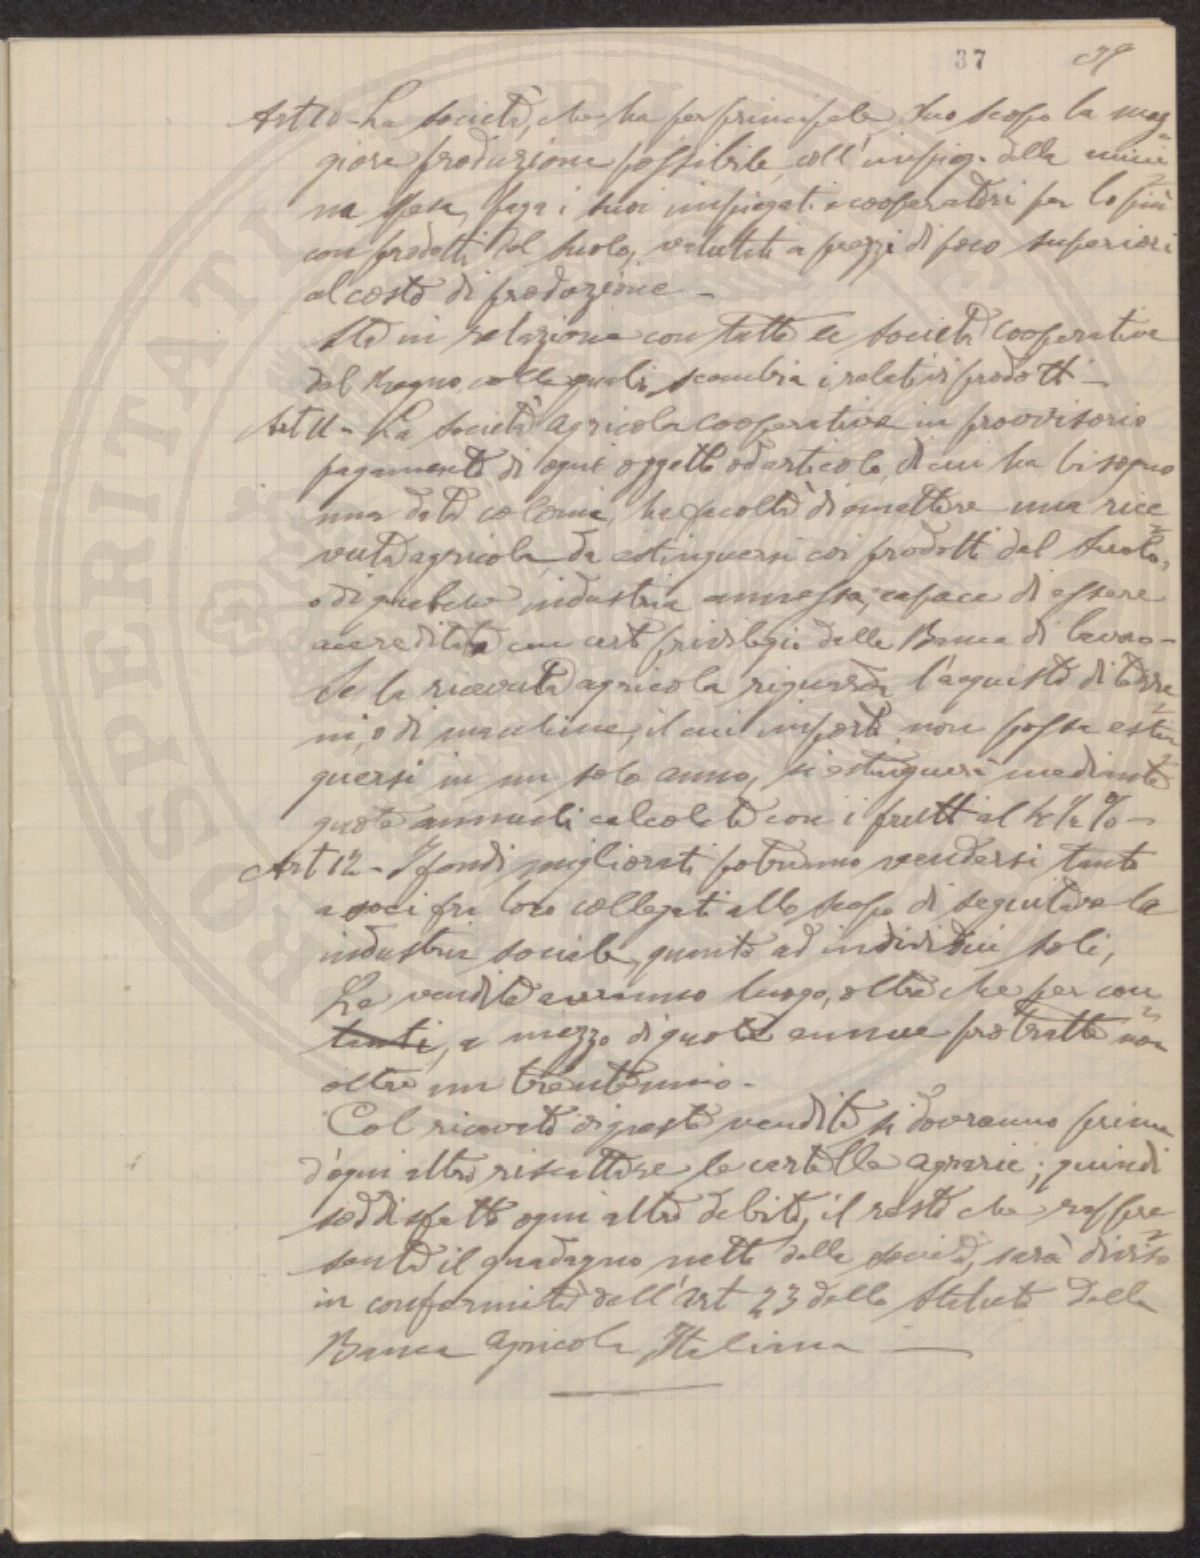 37 39
Art 10 - La società, che ha per principale suo scopo la mag
giore produzione possibile, coll'impiego della mini
ma spesa, paga i suoi impiegati e cooperatori per lo più
con prodotti del suolo, valutati a prezzi di poco superiori
al costo di produzione -
Sta in relazione con tutte le società cooperative
del Regno, colle quali scambia i relativi prodotti -
Art 11 - La società agricola cooperativa in provvisorio
pagamento di ogni oggetto od articolo, di cui ha bisogno
una data colonia, ha facoltà di emettere una rice
vuta agricola da estinguersi coi prodotti del suolo,
o di qualche industria annessa, capace di essere
accreditata con certi privilegi dalla Banca di lavoro -
Se la ricevuta agricola riguarda l'acquisto di terre
ni, o di macchine, il cui importo non possa estin
guersi in un solo anno, si estinguerà mediante
quote annuali calcolate con i frutti al 4 1/2 % -
Art 12 - I fondi migliorati potranno vendersi tanto
a soci fra loro collegati allo scopo di seguitare la
industria sociale, quanto ad individui soli,
Le vendite avranno luogo, oltre che per con
tanti, a mezzo di quote annue protratte non
oltre un trentennio -
Col ricavato di queste vendite si dovranno prima
d'ogni altro riscattare le cartelle agrarie; quindi
soddisfatto ogni altro debito, il resto che rappre
senta il guadagno netto della società, sarà diviso
in conformità dell'Art 23 dello Statuto della
Banca Agricola Italiana
PROSPERITATI